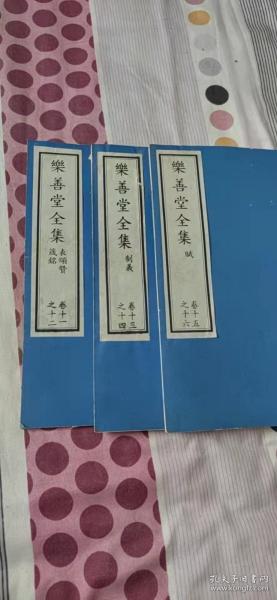 樂善堂全集
表頌贊
箴銘
卷十一
之十二
樂善堂全集
制義
卷十三
之十四
樂善堂全集
賦
卷十五
之十六
孔夫子旧书网